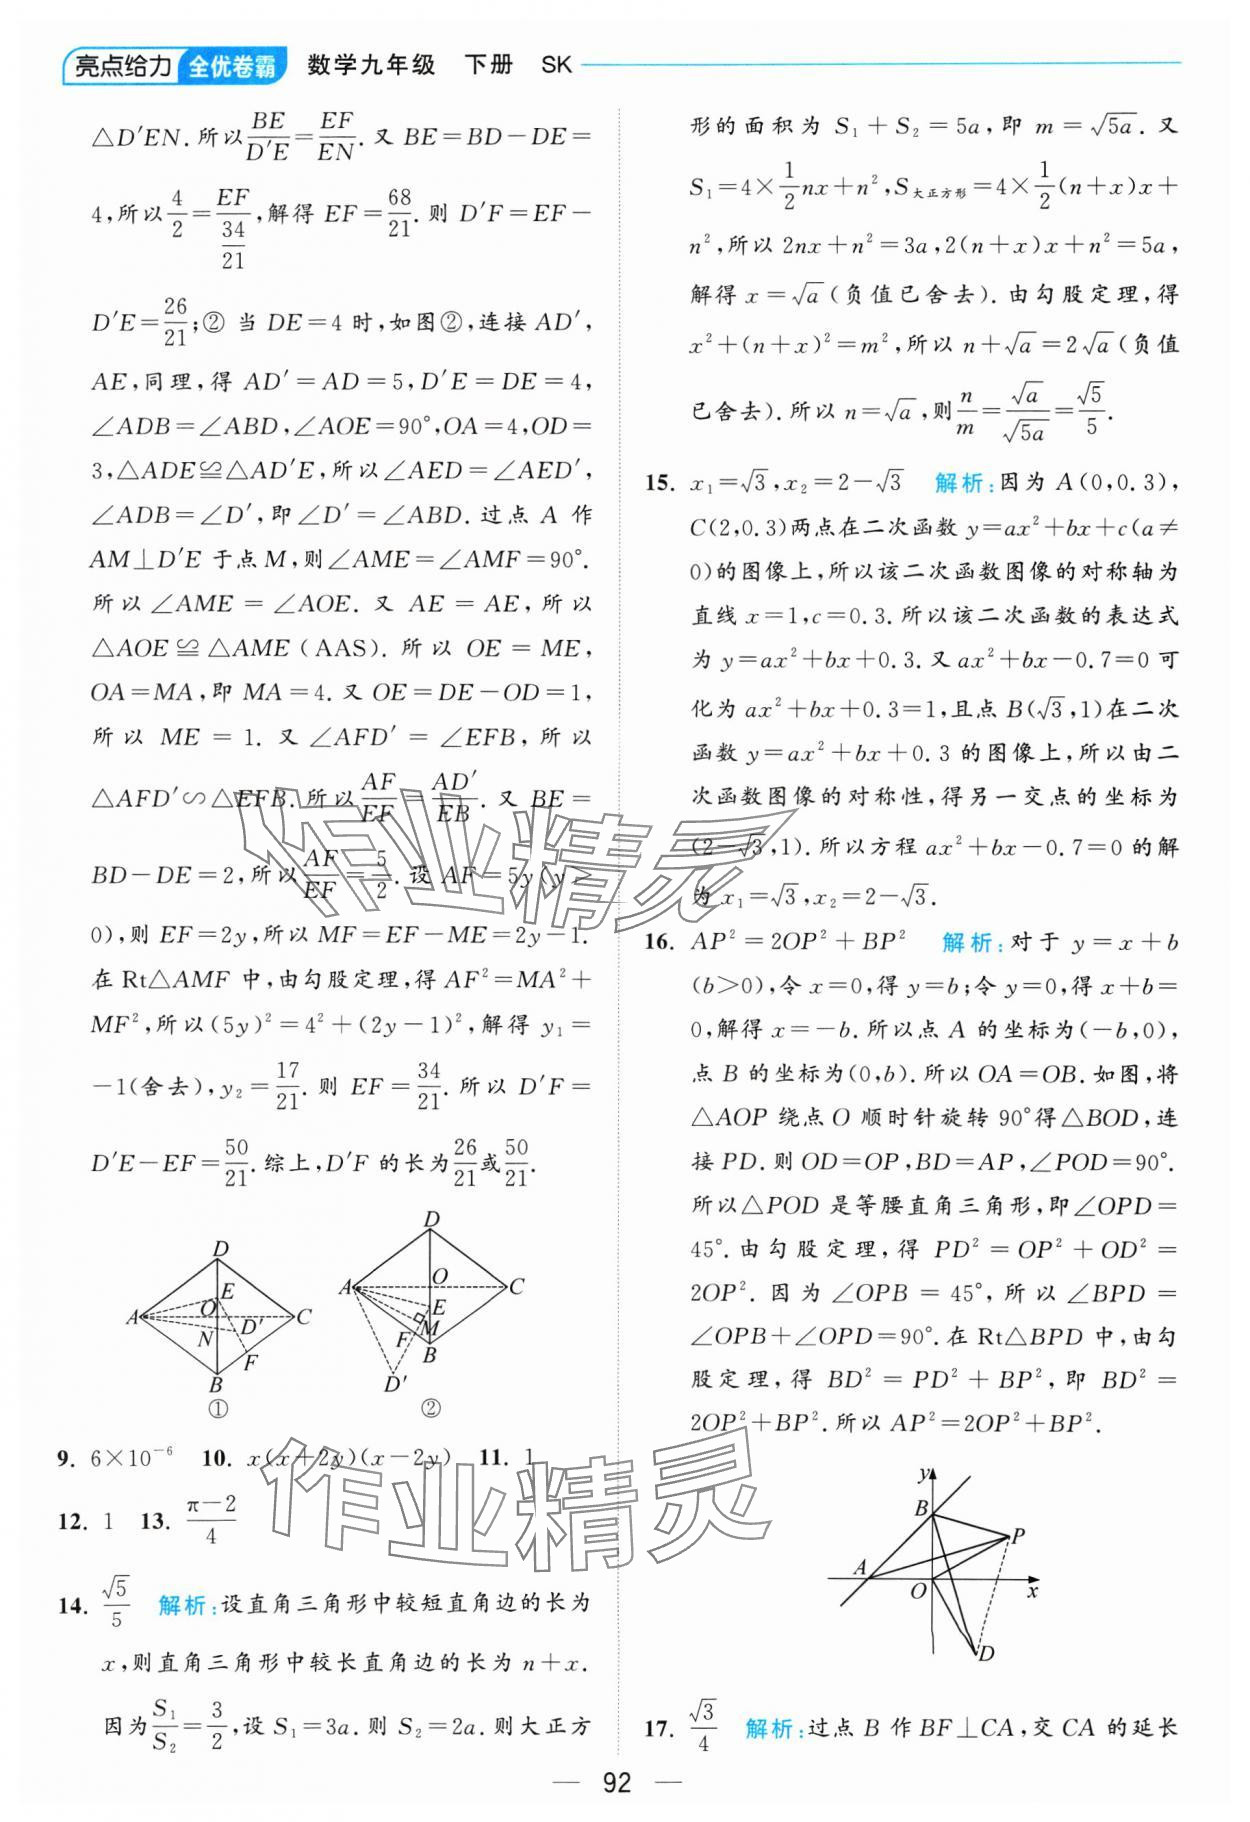 亮点给力 全优卷霸 数学九年级 下册 SK
△D′EN.所以BE/D′E=EF/EN.又 BE=BD-DE=
4,所以4/2=EF/(34/21),解得 EF=68/21.则 D′F=EF-
D′E=26/21;② 当 DE=4 时,如图②,连接 AD′,
AE,同理,得 AD′=AD=5,D′E=DE=4,
∠ADB=∠ABD,∠AOE=90°,OA=4,OD=
3,△ADE≌△AD′E,所以∠AED=∠AED′,
∠ADB=∠D′,即∠D′=∠ABD.过点 A 作
AM⊥D′E 于点 M,则∠AME=∠AMF=90°.
所以∠AME=∠AOE.又 AE=AE,所以
△AOE≌△AME(AAS).所以 OE=ME,
OA=MA,即 MA=4.又 OE=DE-OD=1,
所以 ME=1.又∠AFD′=∠EFB,所以
△AFD′∽△EFB.所以AF/EF=AD′/EB.又 BE=
BD-DE=2,所以AF/EF=5/2.设 AF=5y(y>
0),则 EF=2y,所以 MF=EF-ME=2y-1.
在 Rt△AMF 中,由勾股定理,得 AF²=MA²+
MF²,所以(5y)²=4²+(2y-1)²,解得 y₁=
-1(舍去),y₂=17/21.则 EF=34/21.所以 D′F=
D′E-EF=50/21.综上,D′F 的长为26/21或50/21.
D
E
A
O
C
N
D′
F
B
①
D
A
O
C
E
F
M
B
D′
②
9. 6×10⁻⁶ 10. x(x+2y)(x-2y) 11. 1
12. 1 13. (π-2)/4
14. √5/5 解析:设直角三角形中较短直角边的长为
x,则直角三角形中较长直角边的长为 n+x.
因为S₁/S₂=3/2,设 S₁=3a.则 S₂=2a.则大正方
形的面积为 S₁+S₂=5a,即 m=√5a.又
S₁=4×1/2nx+n²,S大正方形=4×1/2(n+x)x+
n²,所以 2nx+n²=3a,2(n+x)x+n²=5a,
解得 x=√a(负值已舍去).由勾股定理,得
x²+(n+x)²=m²,所以 n+√a=2√a(负值
已舍去).所以 n=√a,则n/m=√a/√5a=√5/5.
15. x₁=√3,x₂=2-√3 解析:因为 A(0,0.3),
C(2,0.3)两点在二次函数 y=ax²+bx+c(a≠
0)的图像上,所以该二次函数图像的对称轴为
直线 x=1,c=0.3.所以该二次函数的表达式
为 y=ax²+bx+0.3.又 ax²+bx-0.7=0 可
化为 ax²+bx+0.3=1,且点 B(√3,1)在二次
函数 y=ax²+bx+0.3 的图像上,所以由二
次函数图像的对称性,得另一交点的坐标为
(2-√3,1).所以方程 ax²+bx-0.7=0 的解
为 x₁=√3,x₂=2-√3.
16. AP²=2OP²+BP² 解析:对于 y=x+b
(b>0),令 x=0,得 y=b;令 y=0,得 x+b=
0,解得 x=-b.所以点 A 的坐标为(-b,0),
点 B 的坐标为(0,b).所以 OA=OB.如图,将
△AOP 绕点 O 顺时针旋转 90°得△BOD,连
接 PD.则 OD=OP,BD=AP,∠POD=90°.
所以△POD 是等腰直角三角形,即∠OPD=
45°.由勾股定理,得 PD²=OP²+OD²=
2OP².因为∠OPB=45°,所以∠BPD=
∠OPB+∠OPD=90°.在 Rt△BPD 中,由勾
股定理,得 BD²=PD²+BP²,即 BD²=
2OP²+BP².所以 AP²=2OP²+BP².
y
B
P
A
O
x
D
17. √3/4 解析:过点 B 作 BF⊥CA,交 CA 的延长
— 92 —
作业精灵
作业精灵